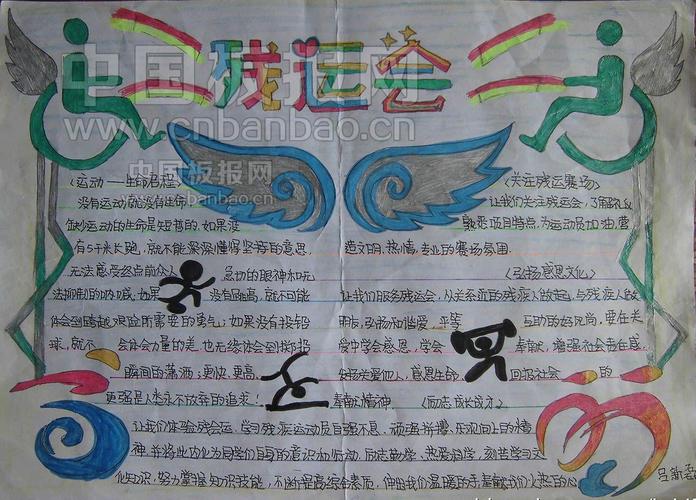 残运会
中国板报网
www.cnbanbao.cn
中国板报网
www.cnbanbao.cn
《运动——生命启程》
没有运动就没有生命
缺少运动的生命是短暂的,如果没
有5千米长跑,就不能深深懂得坚持的意思
无法感受起点前众人 急切的眼神和无
法抑制的呐喊;如果 没有跳高,就不可能
体会到跨越艰险所需要的勇气;如果没有投铅
球,就不 会体会力量的美,也无缘体会到
瞬间的潇洒;更快、更高、
更强是人类永不放弃的追求!
《关注残运赛场》
让我们关注残运会,了解
熟悉项目特点,为运动员加油,营
造文明、热情、专业的赛场氛围
《弘扬感恩文化》
让我们服务残运会,从关系近的残疾人做起,与残疾人做
朋友,弘扬和谐爱、平等 互助的好风尚,要在关
爱中学会感恩,学会 奉献,增强社会责任感
发扬关爱他人,感恩生命 回报社会 的
奉献精神。《励志成长成才》
让我们体验残会运,学习残疾运动员自强不息、顽强拼搏、乐观向上的精
神,并将此内化为同学们自身的意识和行动,励志勤学、热爱科学,刻苦学习文
化知识,努力掌握知识技能,不断提高综合素质,伸出我们温暖的手,奉献我们火热的心